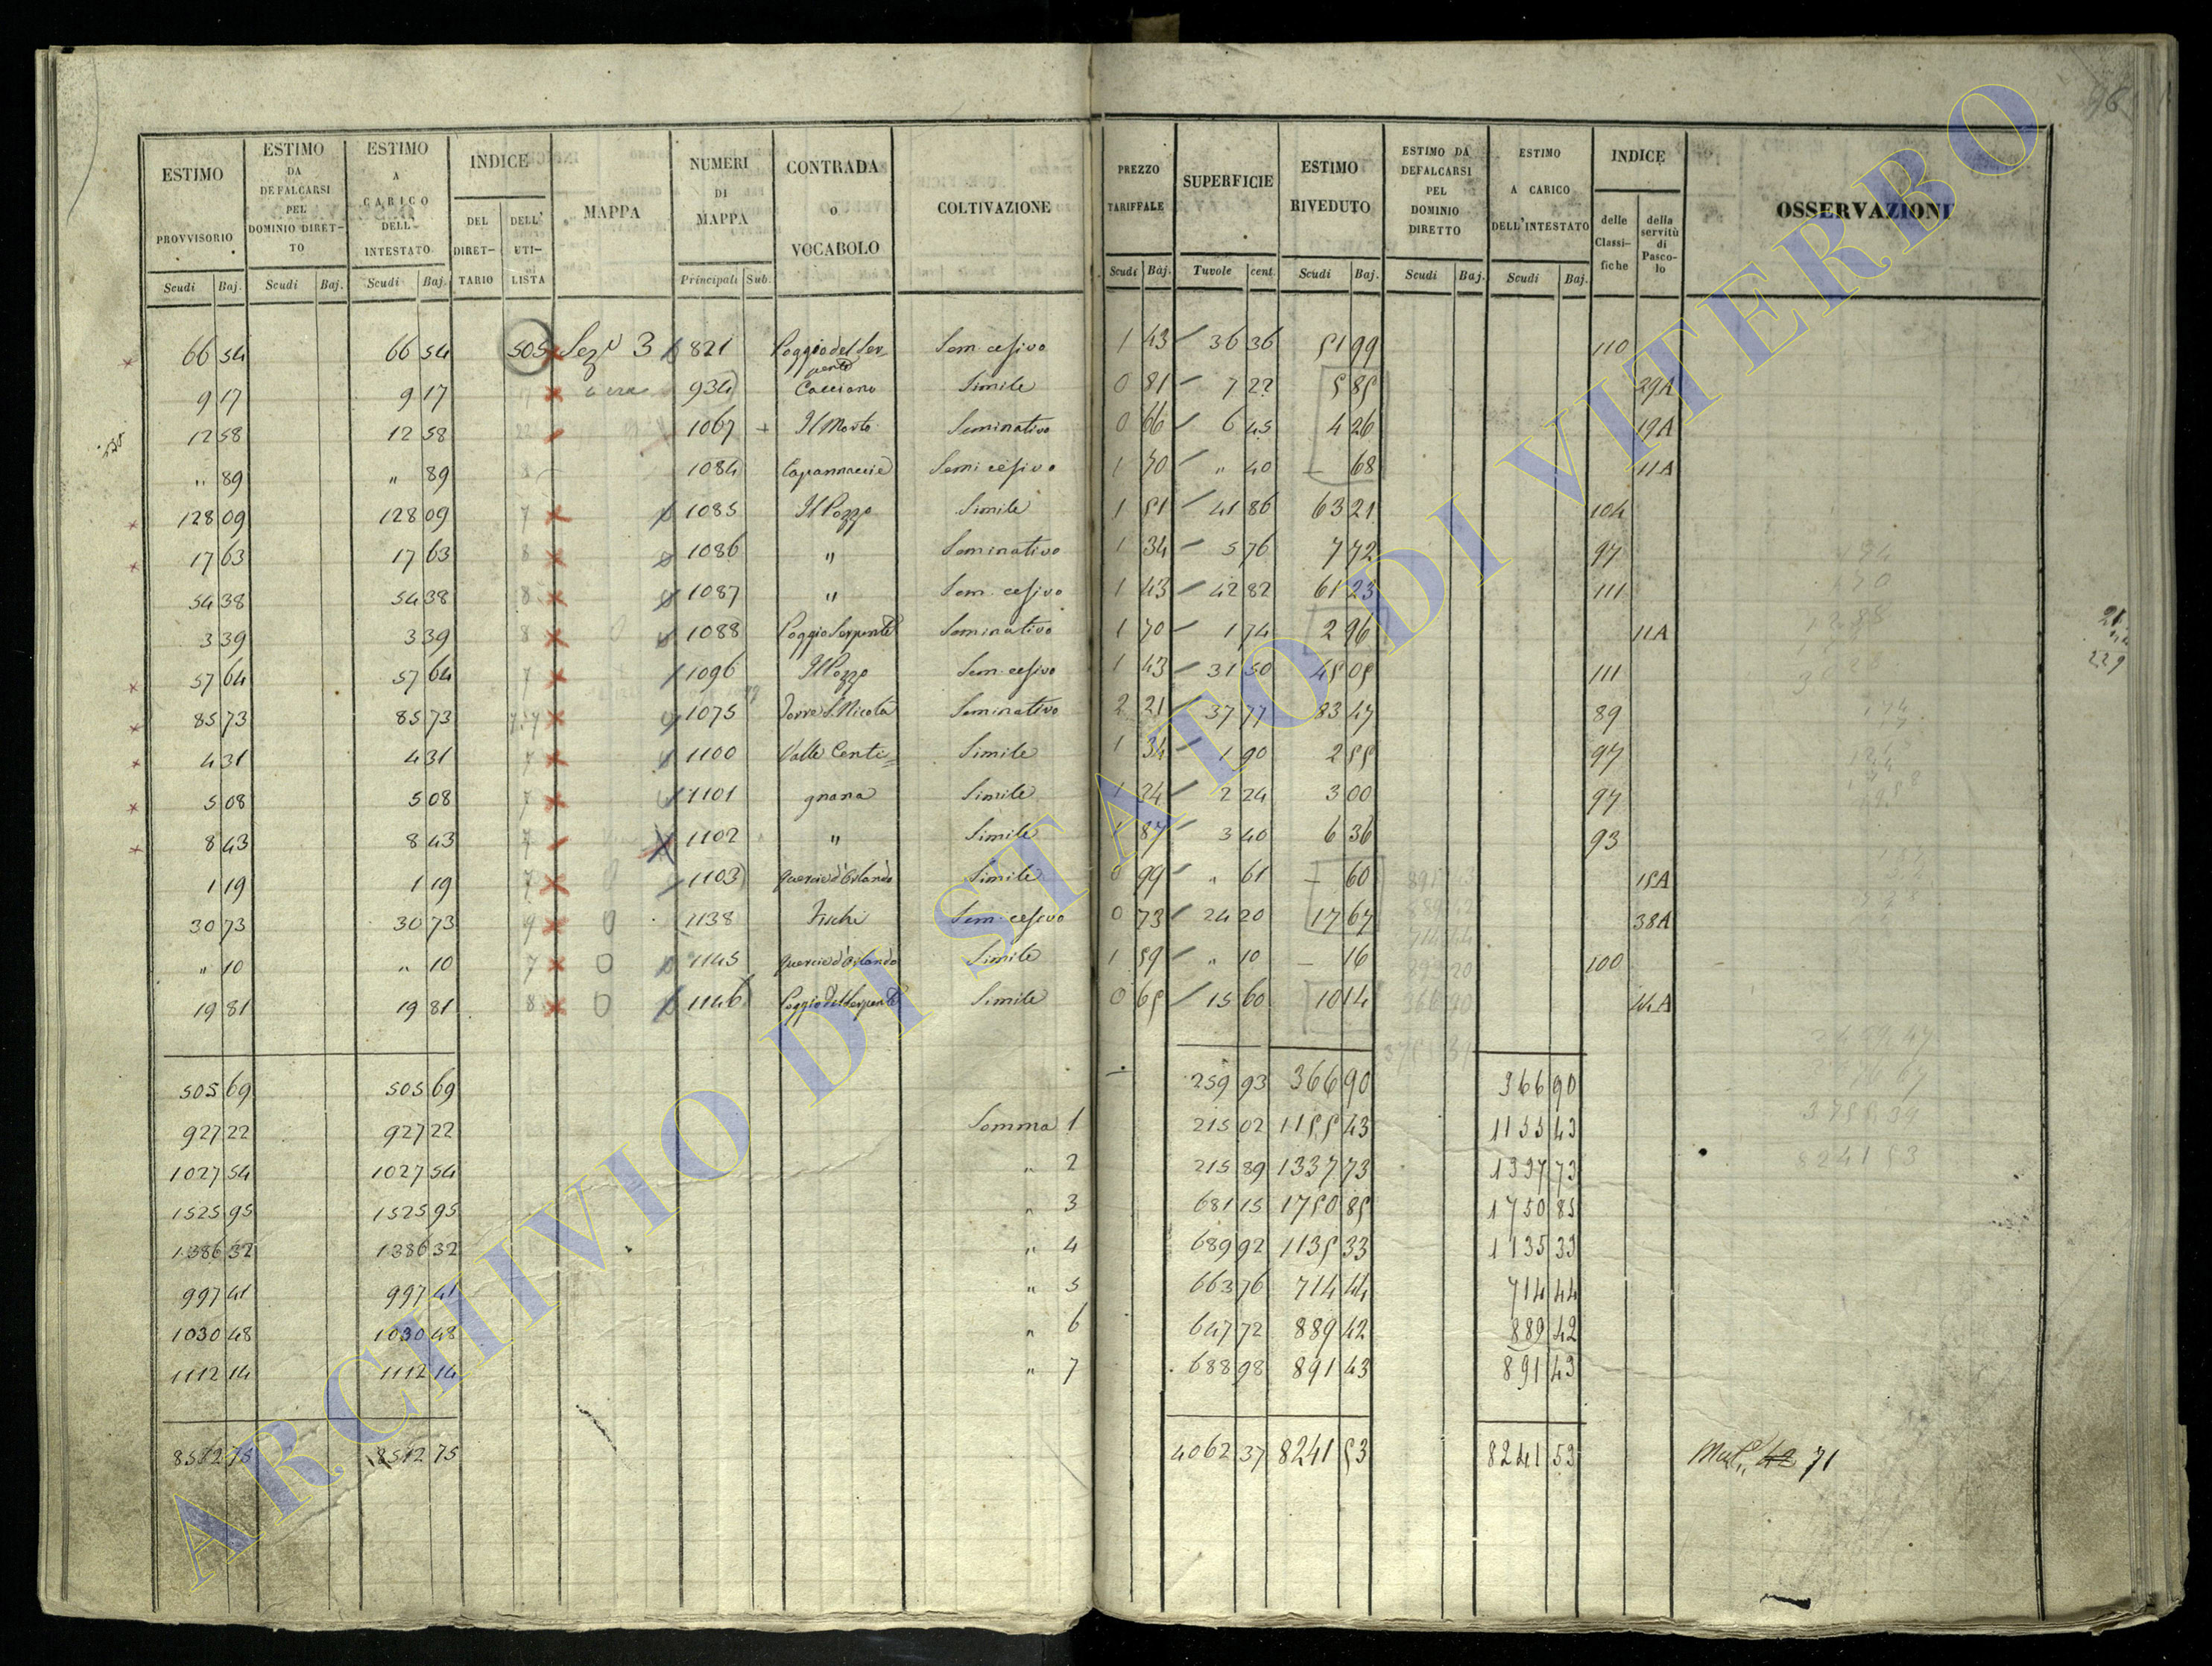 ESTIMO PROVVISORIO Scudi Baj. | ESTIMO DA DEFALCARSI PEL DOMINIO DIRETTO Scudi Baj. | ESTIMO A CARICO DELL' INTESTATO Scudi Baj. | INDICE DEL DIRETTARIO DELL' UTILISTA | MAPPA | NUMERI DI MAPPA Principali Sub. | CONTRADA o VOCABOLO | COLTIVAZIONE | PREZZO TARIFFALE Scudi Baj. | SUPERFICIE Tavole cent. | ESTIMO RIVEDUTO Scudi Baj. | ESTIMO DA DEFALCARSI PEL DOMINIO DIRETTO Scudi Baj. | ESTIMO A CARICO DELL'INTESTATO Scudi Baj. | INDICE delle Classifiche della servitù di Pascolo | OSSERVAZIONI
66 54 66 54 505 Sez. 3 821 Poggio del Serpente Sem. cesivo 1 43 36 36 51 99 110
9 17 9 17 934 Cacciano Simile 0 81 7 22 5 85 29A
12 58 12 58 1067 Il Morto Seminativo 0 66 6 45 4 26 19A
" 89 " 89 1084 Capannaccie Semi cesivo 1 70 " 40 — 68 11A
128 09 128 09 7 1085 Il Pozzo Simile 1 51 41 86 63 21 104
17 63 17 63 8 1086 " Seminativo 1 34 5 76 7 72 97
54 38 54 38 8 1087 " Sem. cesivo 1 43 42 82 61 23 111
3 39 3 39 8 1088 Poggio Serpente Seminativo 1 70 1 74 2 96 11A
57 64 57 64 7 1096 Il Pozzo Sem. cesivo 1 43 31 50 45 05 111
85 73 85 73 1075 Torre S. Nicola Seminativo 2 21 37 77 83 47 89
4 31 4 31 7 1100 Valle Centi= Simile 1 34 1 90 2 55 97
5 08 5 08 7 1101 gnana Simile 1 34 2 24 3 00 97
8 43 8 43 7 1102 " Simile 1 87 3 40 6 36 93
1 19 1 19 7 1103 Quercie d'Orlando Simile 0 99 " 61 — 60 15A
30 73 30 73 1138 Fischi Sem. cesivo 0 73 24 20 17 67 38A
" 10 " 10 7 1145 Quercie d'Orlando Simile 1 59 " 10 — 16 100
19 81 19 81 8 1146 Poggio del Serpente Simile 0 65 15 60 10 14 44A
505 69 505 69 259 93 366 90 366 90
927 22 927 22 Somma 1 215 02 1155 43 1155 43
1027 54 1027 54 " 2 215 89 1337 73 1337 73
1525 95 1525 95 " 3 681 15 1750 85 1750 85
1386 32 1386 32 " 4 689 92 1135 33 1135 33
997 41 997 41 " 5 663 76 714 44 714 44
1030 48 1030 48 " 6 647 72 889 42 889 42
1112 14 1112 14 " 7 688 98 891 43 891 43
8512 75 8512 75 4062 37 8241 53 8241 53 71
ARCHIVIO DI STATO DI VITERBO